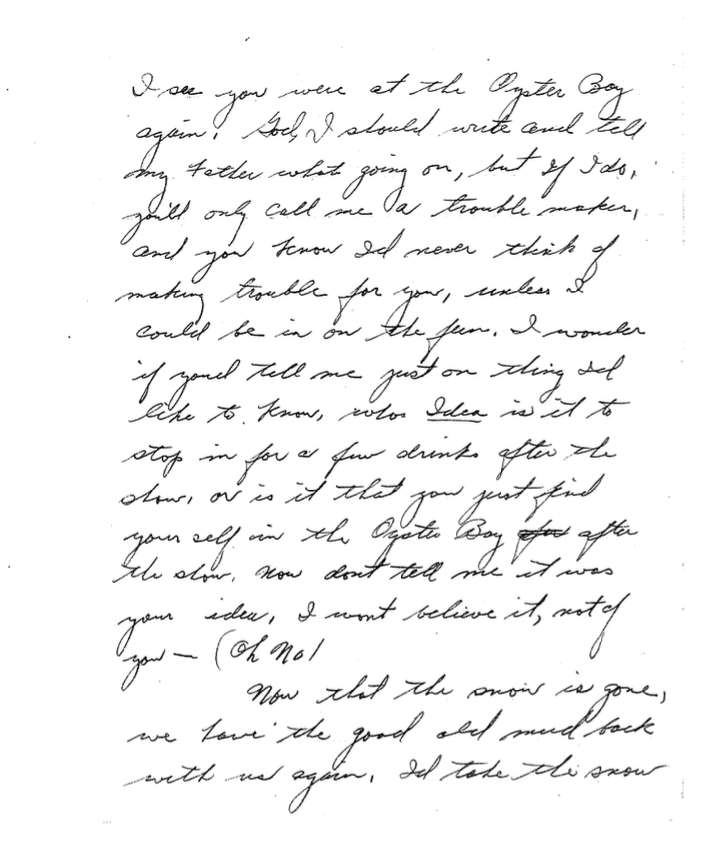 I see you were at the Oyster Bay
again. God, I should write and tell
my Father whats going on, but If I do,
you'll only call me a trouble maker,
and you know Id never think of
making trouble for you, unless I
could be in on the fun. I wonder
if youd tell me just on thing Id
like to know, whos Idea is it to
stop in for a few drinks after the
show, or is it that you just find
your self in the Oyster Bay after
the show. Now dont tell me it was
your idea, I wont believe it, not of
you — (Oh No!
Now that the snow is gone,
we have the good old mud back
with us again. Id take the snow